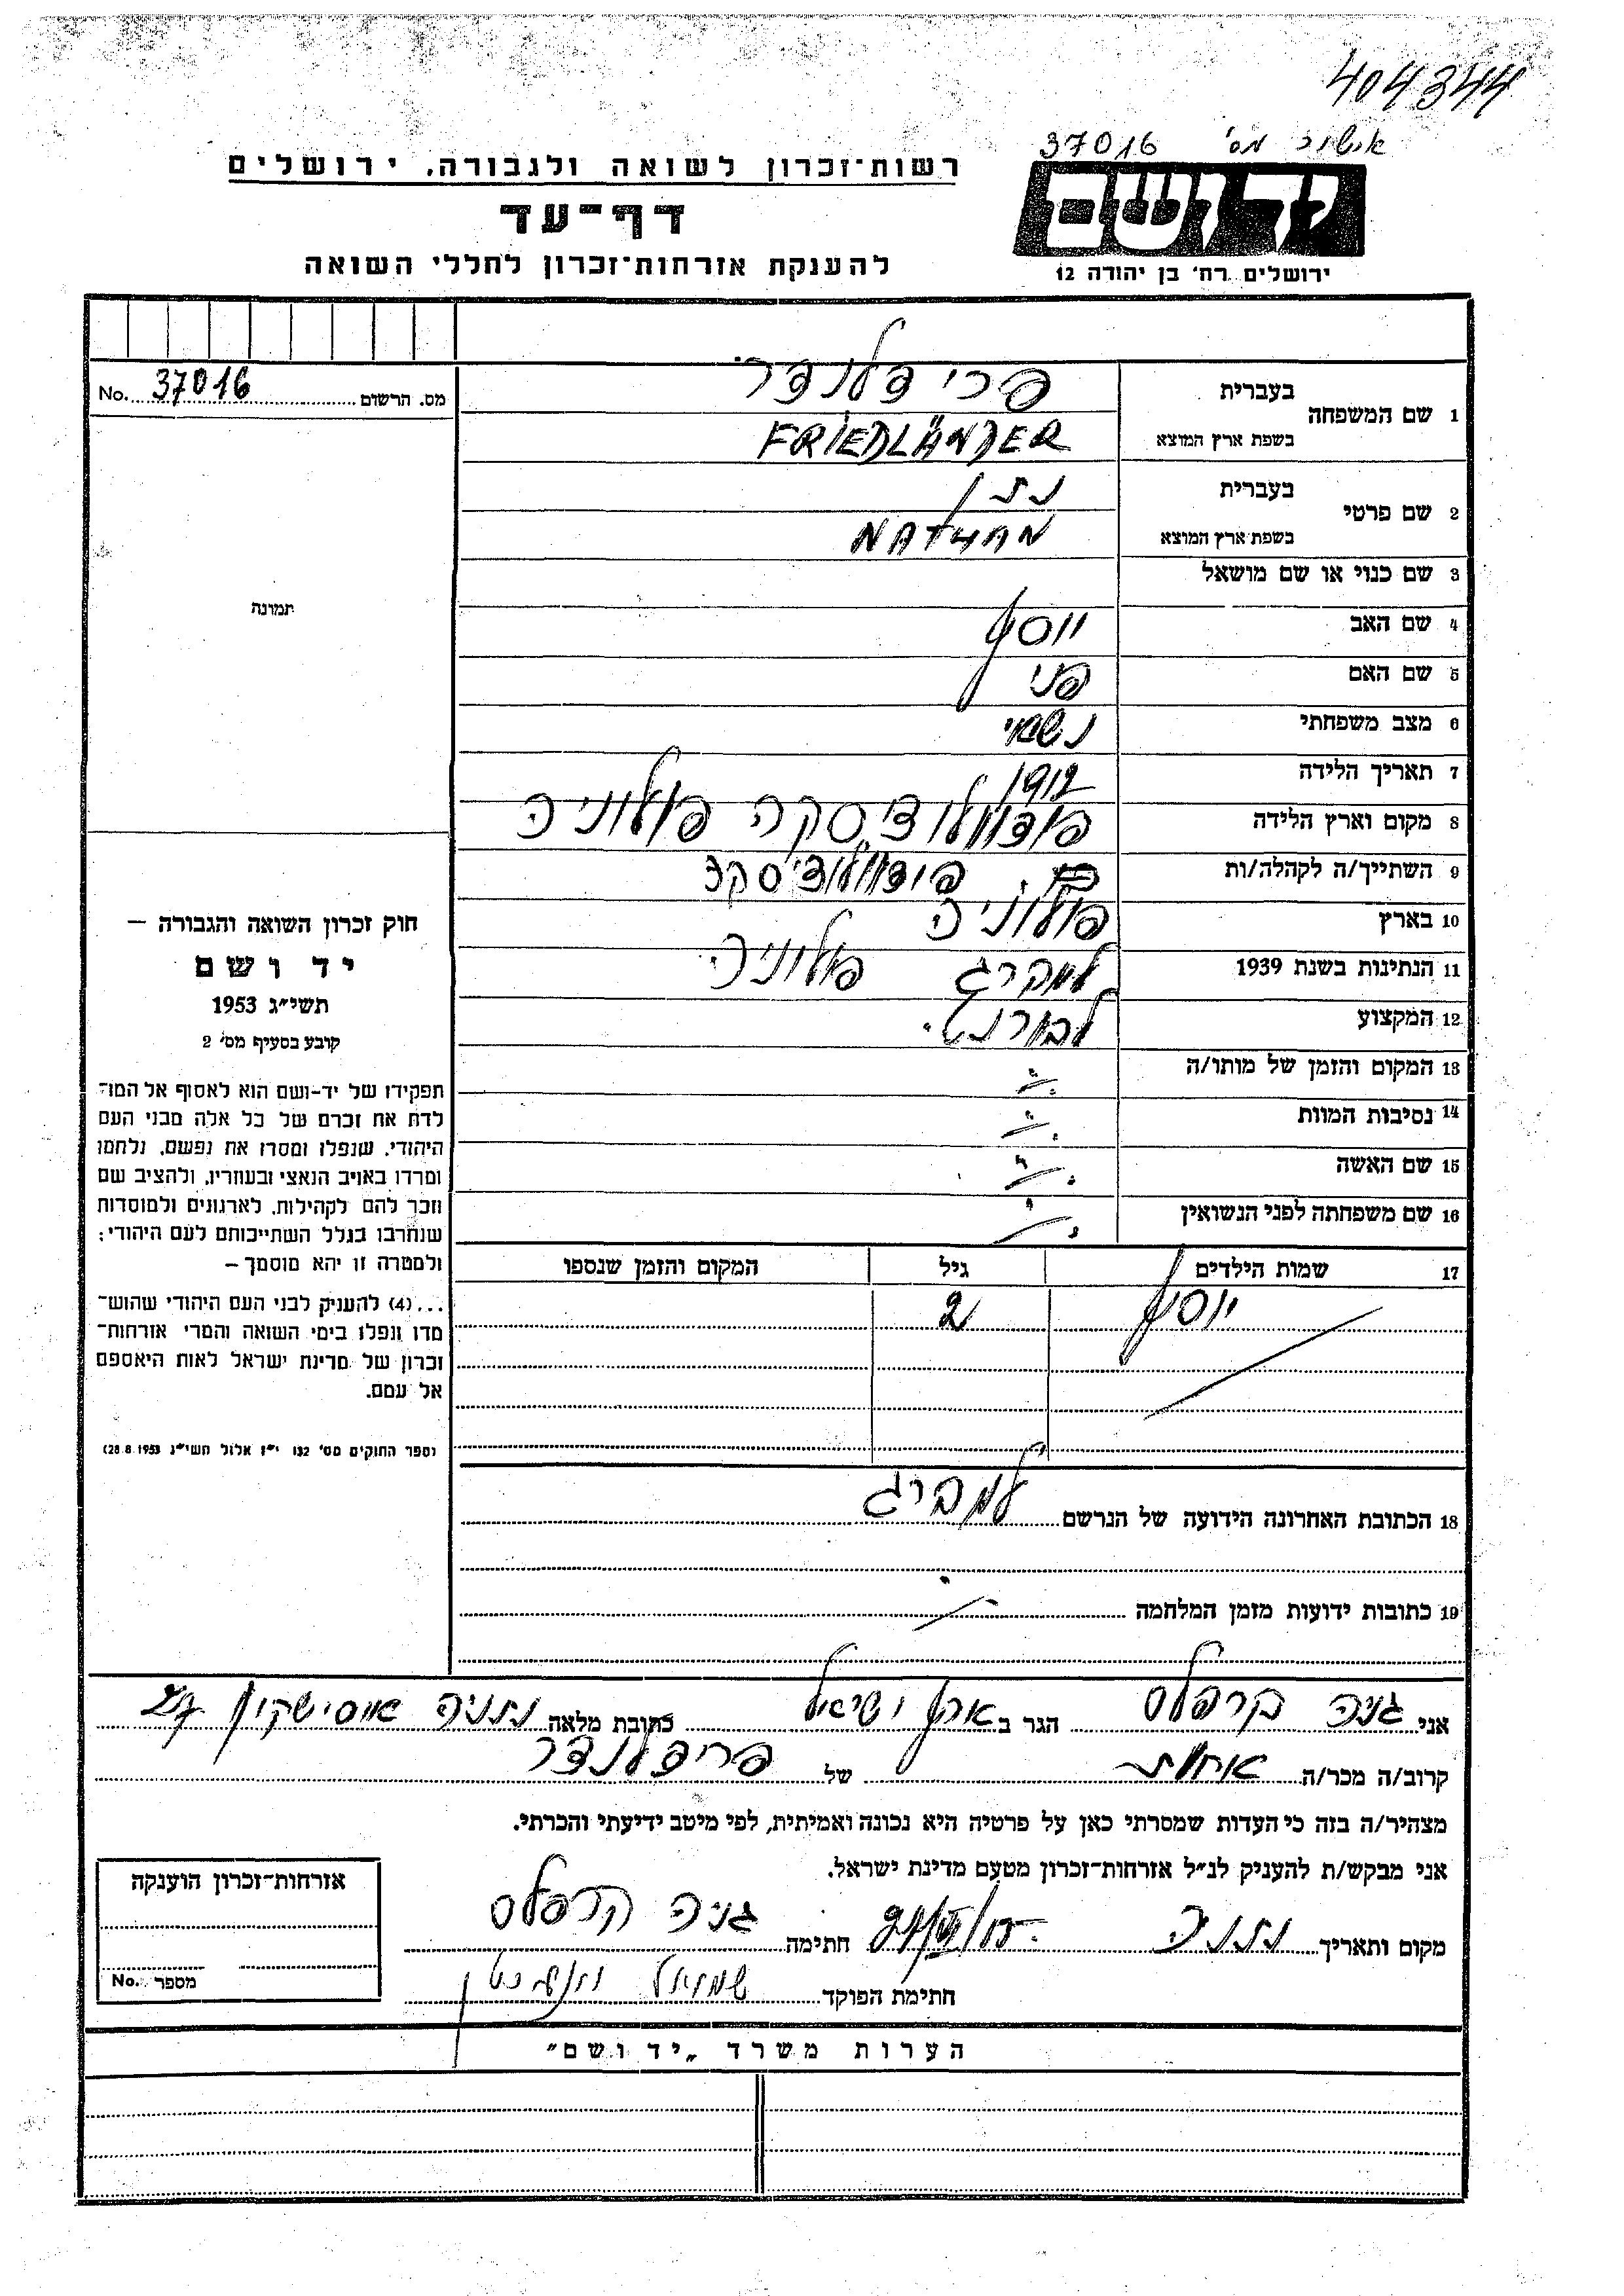 404344
אישור מס' 37016
רשות-זכרון לשואה ולגבורה, ירושלים
דף-עד
להענקת אזרחות-זכרון לחללי השואה
יד ושם
ירושלים רח' בן יהודה 12
No. 37016 מס. הרשום
תמונה
חוק זכרון השואה והגבורה —
יד ושם
תשי"ג 1953
קובע בסעיף מס' 2
תפקידו של יד-ושם הוא לאסוף אל המו-
לדת את זכרם של כל אלה מבני העם
היהודי, שנפלו ומסרו את נפשם, נלחמו
ומרדו באויב הנאצי ובעוזריו, ולהציב שם
וזכר להם לקהילות, לארגונים ולמוסדות
שנחרבו בגלל השתייכותם לעם היהודי;
ולמטרה זו יהא מוסמך —
...(4) להעניק לבני העם היהודי שהוש-
מדו ונפלו בימי השואה והמרי אזרחות-
זכרון של מדינת ישראל לאות היאספם
אל עמם.
(ספר החוקים מס' 132 י"ז אלול תשי"ג 28.8.1953)
1 שם המשפחה בעברית פרידלנדר
בשפת ארץ המוצא FRIEDLÄNDER
2 שם פרטי בעברית נתן
בשפת ארץ המוצא NATHAN
3 שם כנוי או שם מושאל
4 שם האב יוסף
5 שם האם פני
6 מצב משפחתי נשאוי
7 תאריך הלידה 1912
8 מקום וארץ הלידה פולוניה
9 השתייך/ה לקהלה/ות
10 בארץ פולוניה
11 הנתינות בשנת 1939 למברג פולוניה
12 המקצוע לבורנט.
13 המקום והזמן של מותו/ה
14 נסיבות המוות
15 שם האשה
16 שם משפחתה לפני הנשואין
17 שמות הילדים גיל המקום והזמן שנספו
יוסף 2
18 הכתובת האחרונה הידועה של הנרשם למברג
19 כתובות ידועות מזמן המלחמה
אני גניה קרפלס הגר ב ארץ ישראל כתובת מלאה נתניה אוסישקין 27
קרוב/ה מכר/ה אחות של פרידלנדר
מצהיר/ה בזה כי העדות שמסרתי כאן על פרטיה היא נכונה ואמיתית, לפי מיטב ידיעתי והכרתי.
אני מבקש/ת להעניק לנ"ל אזרחות-זכרון מטעם מדינת ישראל.
מקום ותאריך נתניה חתימה גניה קרפלס
חתימת הפוקד שמואל
אזרחות-זכרון הוענקה
מספר No.
הערות משרד "יד ושם"